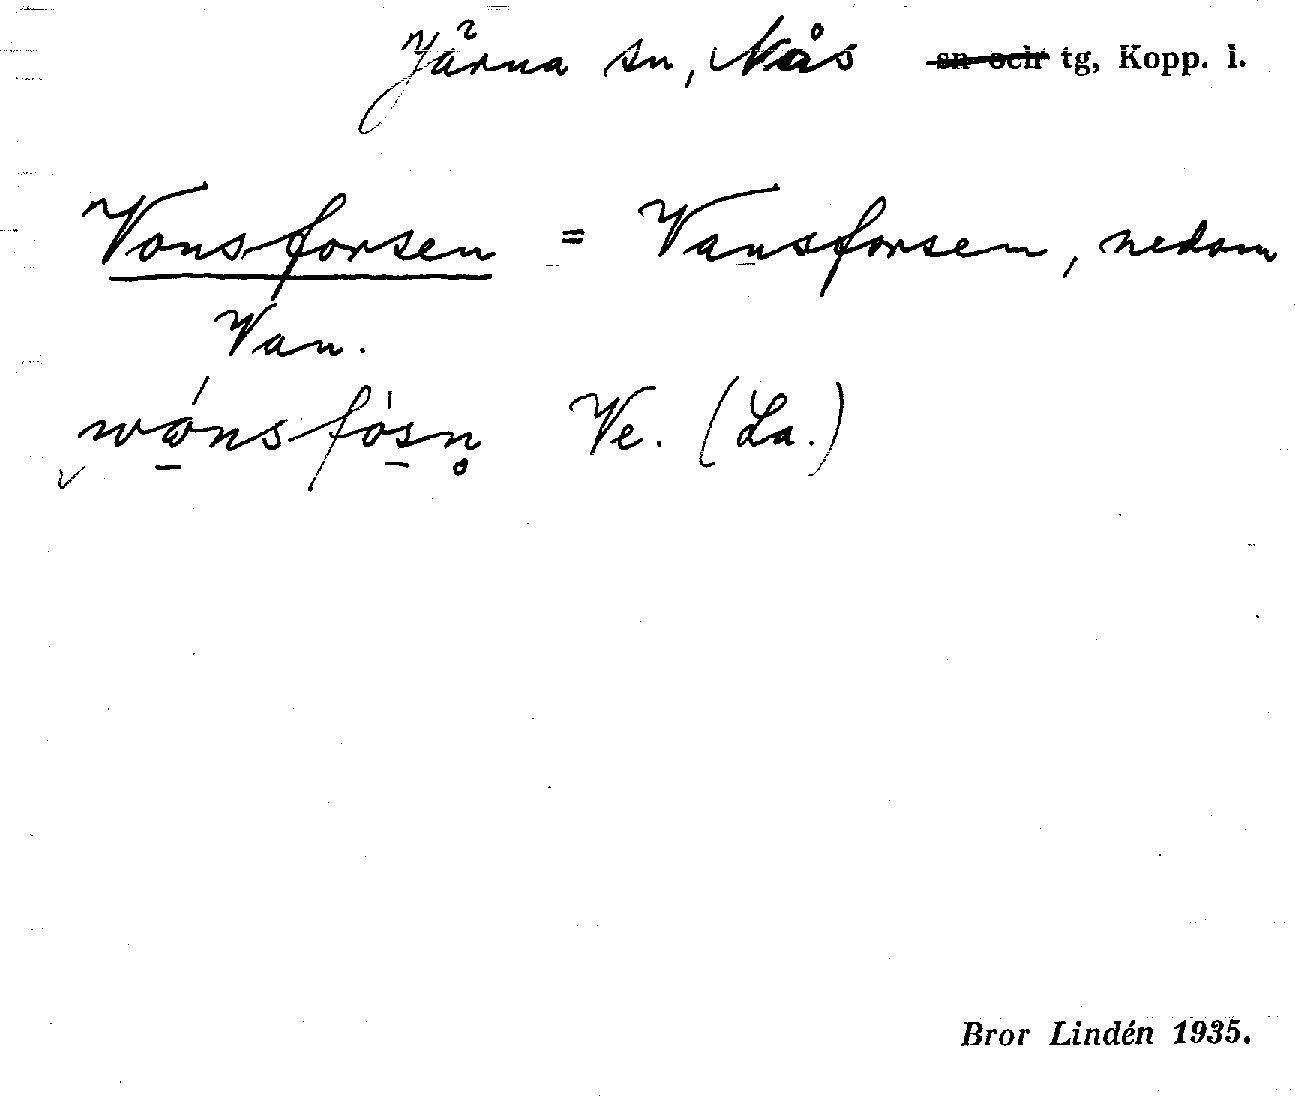 Järna sn, Nås ~~sn och~~ tg, Kopp. l.
Vonsforsen = Vansforsen, nedom
Van.
wónsfósn̥ Ve. (La.)
Bror Lindén 1935.